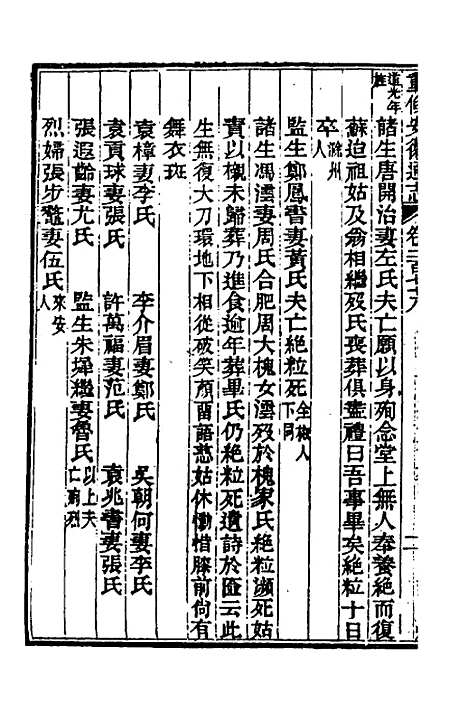 重修安徽通志 卷三百
道光年旌
諸生唐開治妻左氏夫亡願以身殉念堂上無人奉養絶而復
蘇迨祖姑及翁相繼歿氏喪葬俱盡禮曰吾事畢矣絶粒十日
卒滁州人
監生鄭鳳書妻黃氏夫亡絶粒死全椒人下同
諸生馮澐妻周氏合肥周大槐女澐歿於槐家氏絶粒瀕死姑
責以櫬未歸葬乃進食逾年葬畢氏仍絶粒死遺詩於匳云此
生無復大刀環地下相從破笑顔留語慈姑休慟惜膝前尙有
舞衣斑
袁樟妻李氏 李介眉妻鄭氏 吳朝何妻李氏
袁貢球妻張氏 許萬福妻范氏 袁兆書妻張氏
張遐齡妻尤氏 監生朱墿繼妻魯氏以上夫亡殉烈
烈婦張步鼇妻伍氏來安人